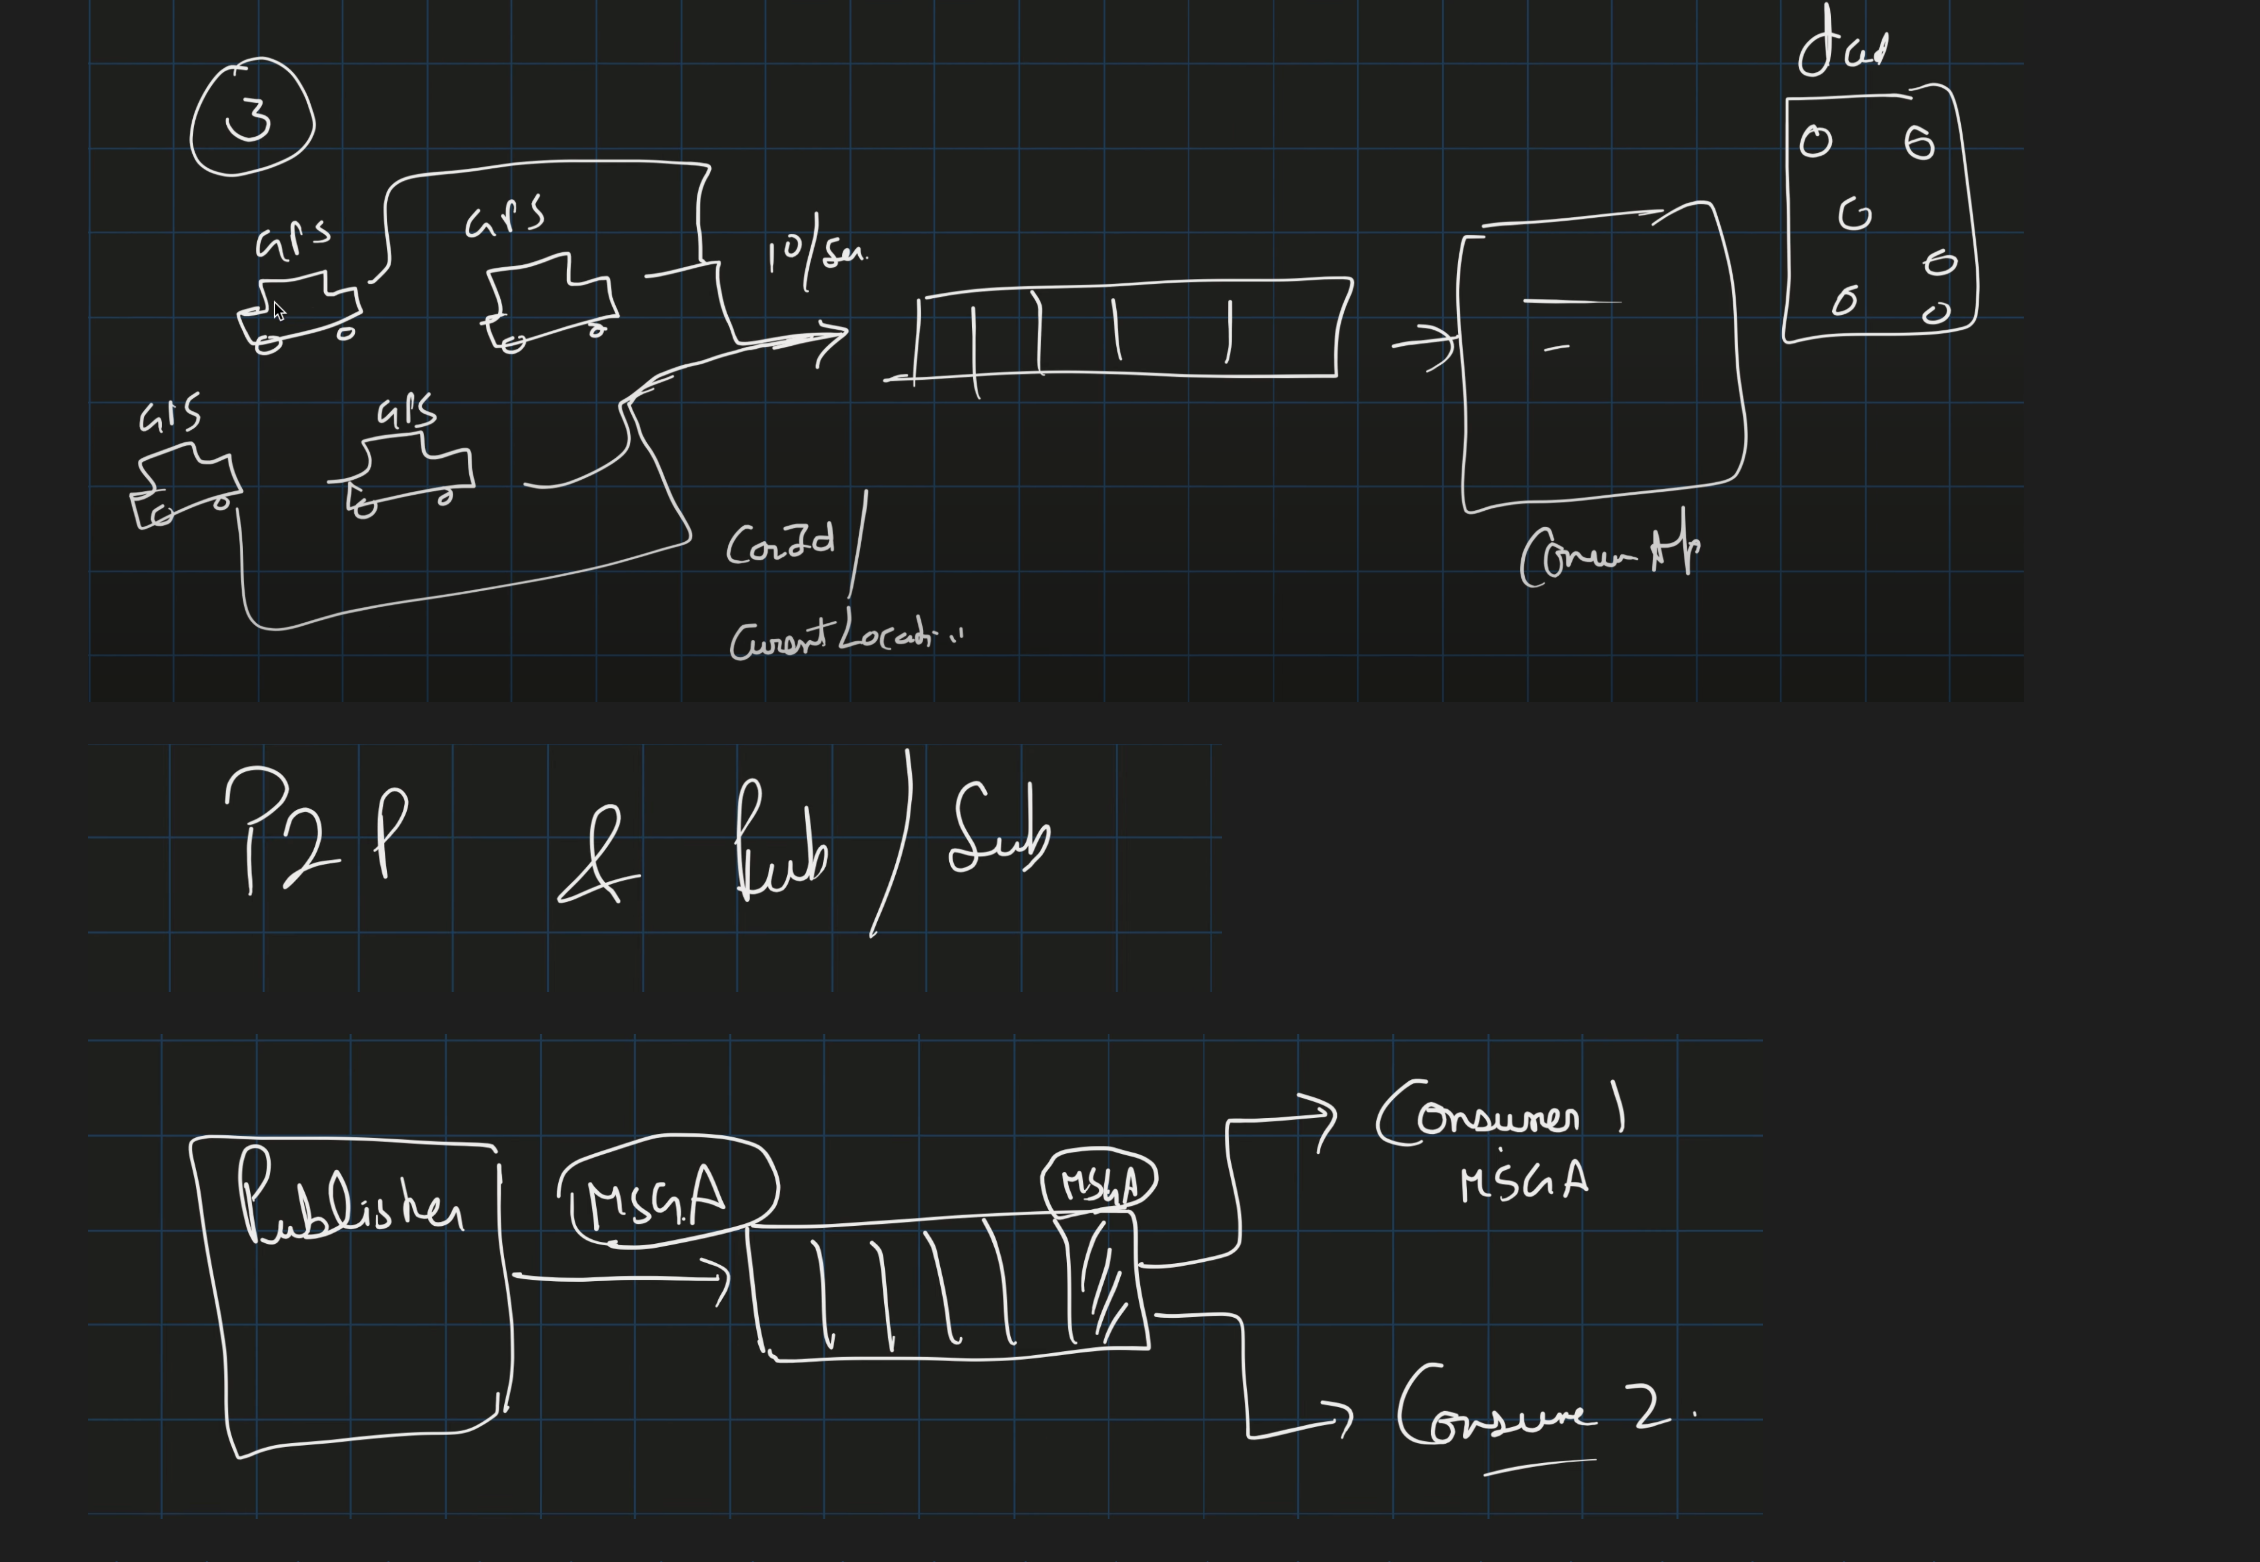 3
GPS
GPS
10/sec.
GPS
GPS
CarId /
Current Locati...
Consum App
P2P & Pub/Sub
Publisher
MSG.A
MSGA
Consumer 1
MSGA
Consume 2.